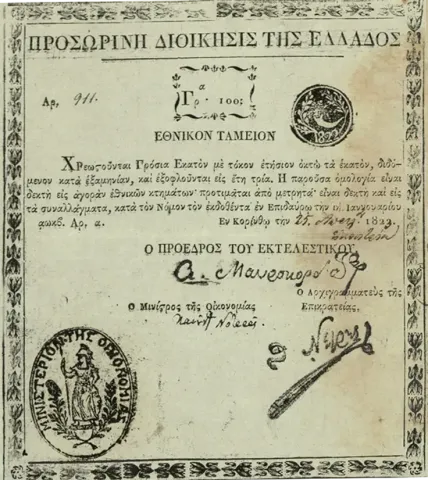 ΠΡΟΣΩΡΙΝΗ ΔΙΟΙΚΗΣΙΣ ΤΗΣ ΕΛΛΑΔΟΣ
Αρ, 911.
α
Γρ. 100;
ΕΘΝΙΚΟΝ ΤΑΜΕΙΟΝ
Χρεωστοῦνται Γρόσια Εκατὸν μὲ τόκον ἐτήσιον ὀκτὼ τὰ ἑκατὸν, διδό-
μενον κατὰ ἑξαμηνίαν, καὶ ἐξοφλοῦνται εἰς ἔτη τρία. Η παροῦσα ὁμολογία εἶναι
δεκτὴ εἰς ἀγορὰν ἐθνικῶν κτημάτων· προτιμᾶται ἀπὸ μετρητά· εἶναι δεκτὴ καὶ εἰς
τὰ συναλλάγματα, κατὰ τὸν Νόμον τὸν ἐκδοθέντα ἐν Επιδαύρῳ τὴν Ιαννουαρίου
αωκβ. Αρ, α. Εν Κορίνθῳ τὴν 25 1822
Ο ΠΡΟΕΔΡΟΣ ΤΟΥ ΕΚΤΕΛΕΣΤΙΚΟΥ
Α. Μαυροκορδ
Ο Αρχιγραμματεὺς τῆς
Επικρατείας.
Ο Μινίστρος τῆς Οἰκονομίας
ΜΙΝΙΣΤΕΡΙΟΝ ΤΗΣ ΟΙΚΟΝΟΜΙΑΣ